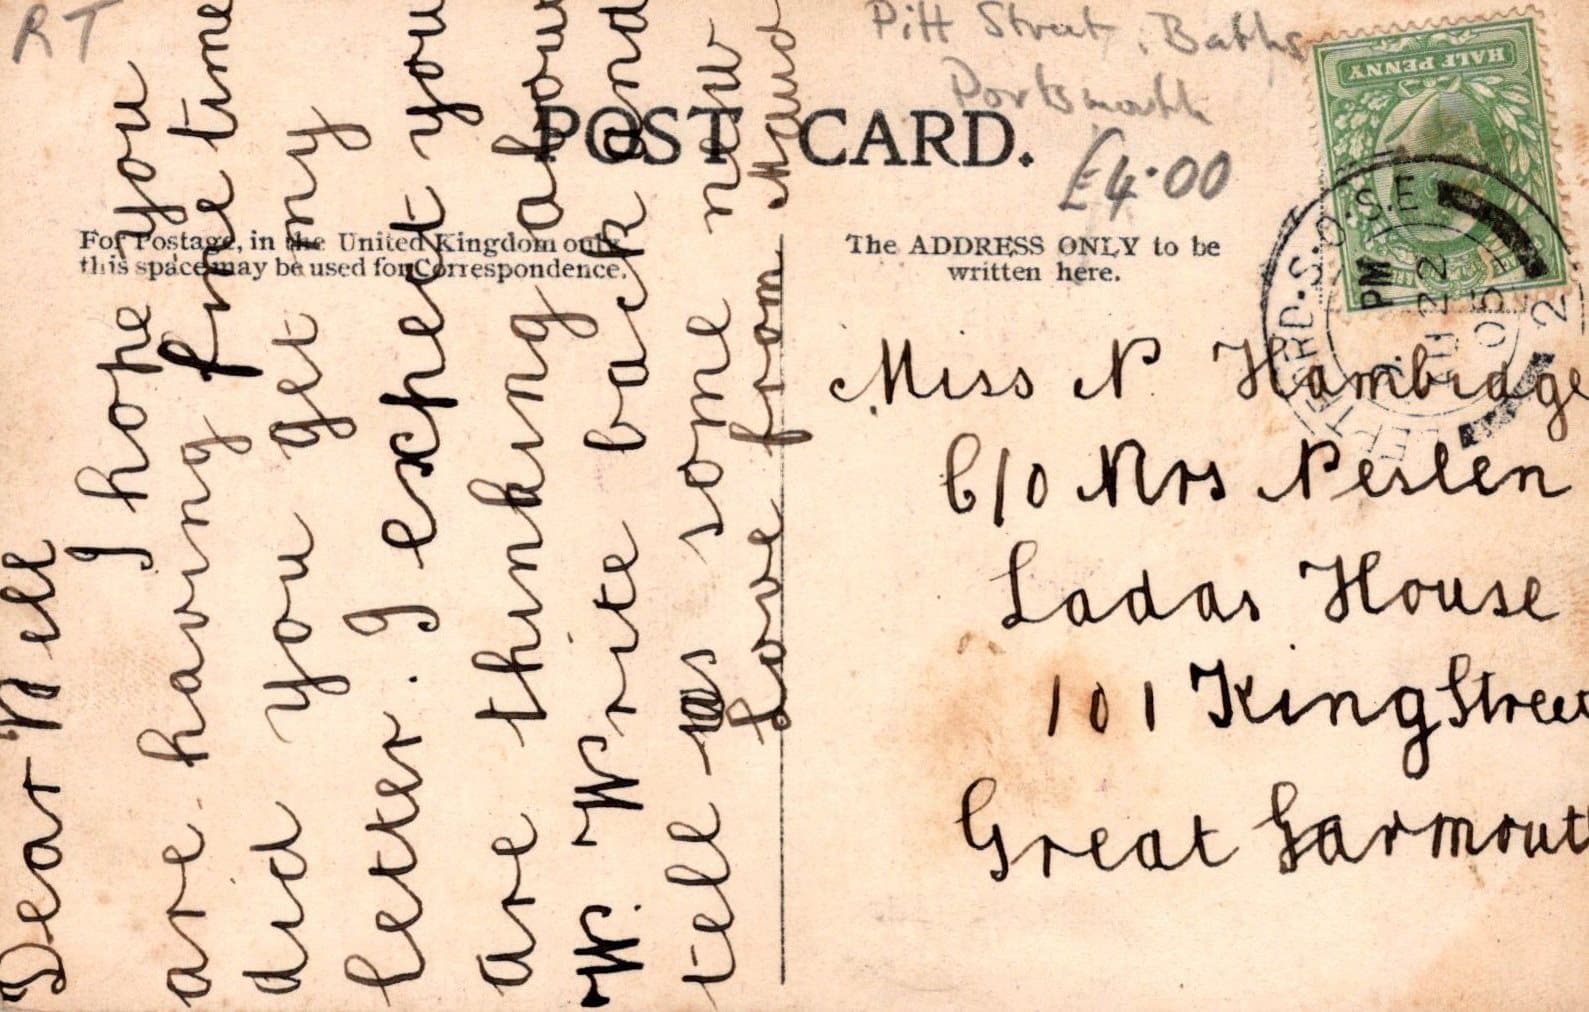 RT
Pitt Street, Baths
Portsmouth
£4.00
POST CARD.
For Postage, in the United Kingdom only
this space may be used for Correspondence.
The ADDRESS ONLY to be
written here.
HALF PENNY
S.O.S.E
PM
22
05
2
Dear Nell
I hope you
are having fine time
did you get my
letter. I expect you
are thinking about
W. Write back and
tell us some new
Love from Maud
Miss N Hambidge
C/o Mrs Neslen
Ladas House
101 King Street
Great Yarmouth